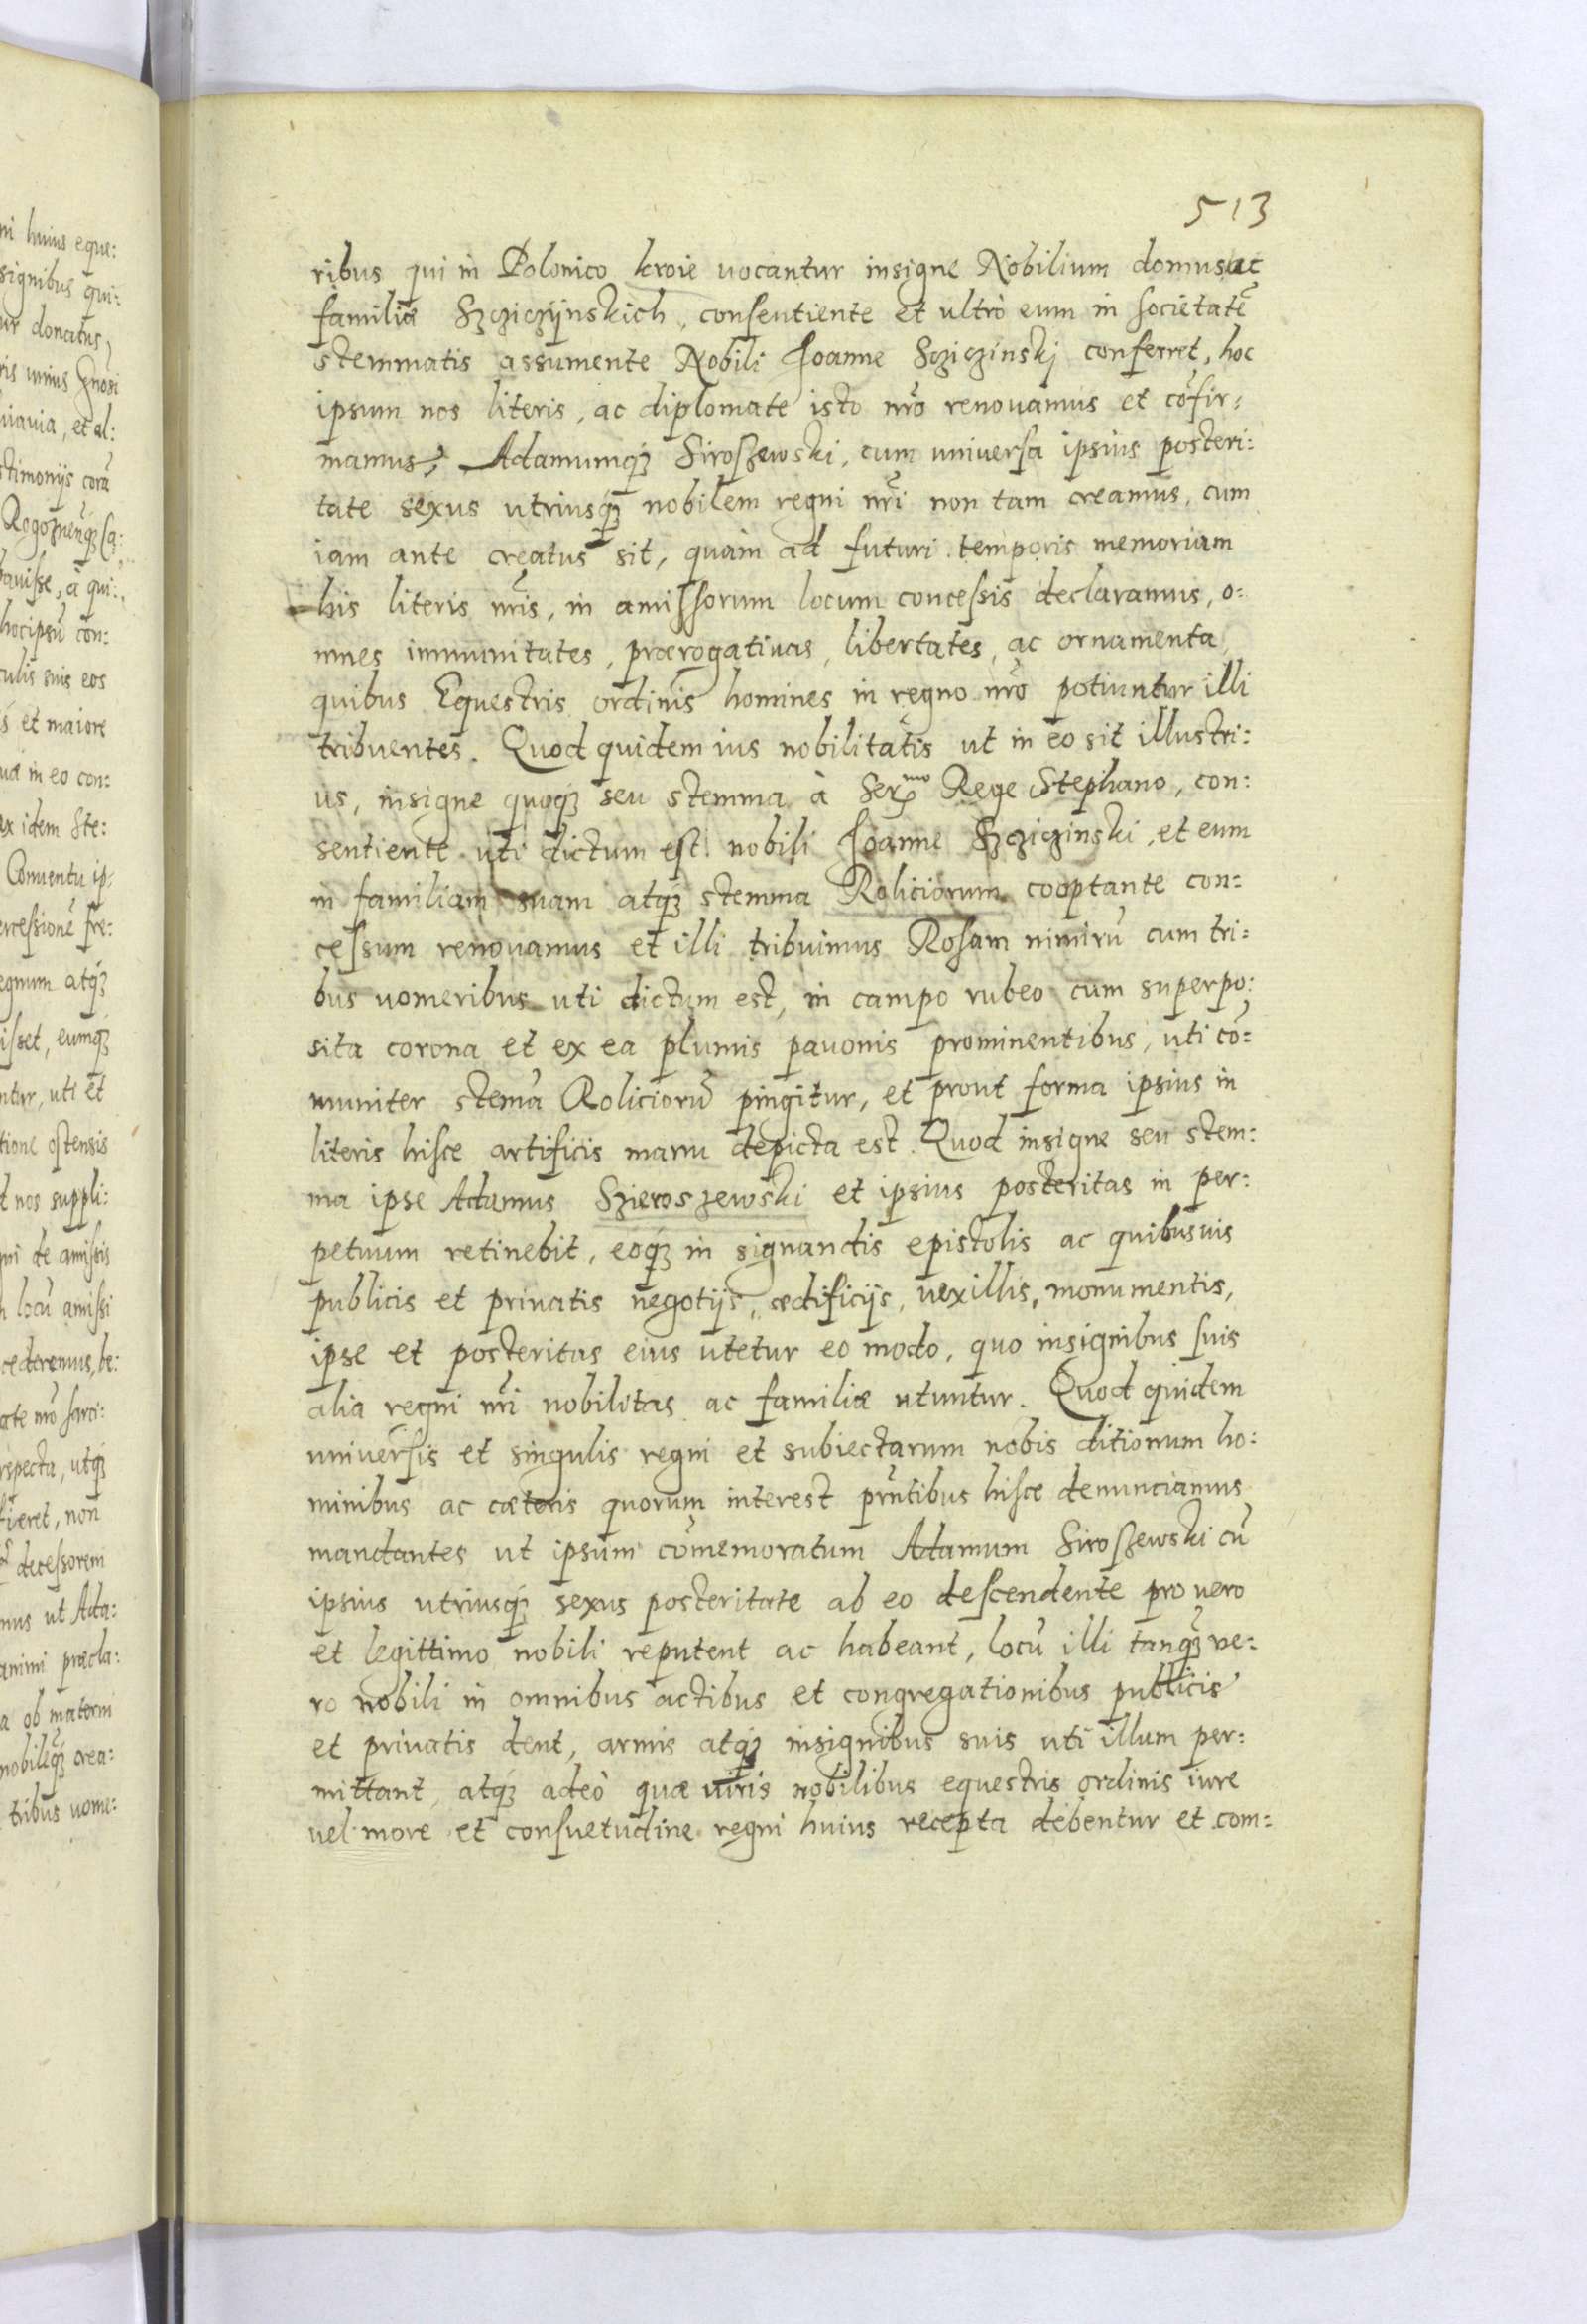 513
ribus qui in Polonico kroie uocantur insigne Nobilium domus ac
familiæ Szcziczijnskich, consentiente et ultrò eum in societatē
stemmatis assumente Nobili Joanne Scziczinskj conferret, hoc
ipsum nos literis, ac diplomate isto nr̃o renouamus et cōfir:
mamus, Adamumq́ꝫ Siroszewski, cum uniuersa ipsius posteri:
tate sexus utriusq́ꝫ nobilem regni nr̃i non tam creamus, cum
iam ante creatus sit, quàm ad futuri temporis memoriam
his literis nr̃is, in amissorum locum concessis declaramus, o:
mnes immunitates, prærogatiuas, libertates, ac ornamenta,
quibus Equestris ordinis homines in regno nr̃o potiuntur illi
tribuentes. Quod quidem ius nobilitatis ut in eo sit illustri:
us, insigne quoq́ꝫ seu stemma à Serᵐᵒ Rege Stephano, con:
sentiente uti dictum est nobili Joanne Szcziczinski, et eum
in familiam suam atq́ꝫ stemma Roliciorum cooptante con:
cessum renouamus et illi tribuimus Rosam nimirū cum tri:
bus uomeribus uti dictum est, in campo rubeo cum superpo:
sita corona et ex ea plumis pauonis prominentibus, uti cō:
muniter stem̃a Roliciorū pingitur, et prout forma ipsius in
literis hisce artificis manu depicta est. Quod insigne seu stem:
ma ipse Adamus Szieroszewski et ipsius posteritas in per:
petuum retinebit, eoq́ꝫ in signandis epistolis ac quibusuis
publicis et priuatis negotijs, ædificijs, uexillis, monumentis,
ipse et posteritas eius utetur eo modo, quo insignibus suis
alia regni nr̃i nobilitas ac familiæ utuntur. Quod quidem
uniuersis et singulis regni et subiectarum nobis ditionum ho:
minibus ac cæteris quorum interest prñtibus hisce denunciamus
mandantes ut ipsum com̃emoratum Adamum Siroszewski cū
ipsius utriusq́ꝫ sexus posteritate ab eo descendente pro uero
et legittimo nobili reputent ac habeant, locū illi tanq́ꝫ ue:
ro nobili in omnibus actibus et congregationibus publicis
et priuatis dent, armis atq́ꝫ insignibus suis uti illum per:
mittant, atq́ꝫ adeò quæ uiris nobilibus equestris ordinis iure
uel more et consuetudine regni huius recepta debentur et com: